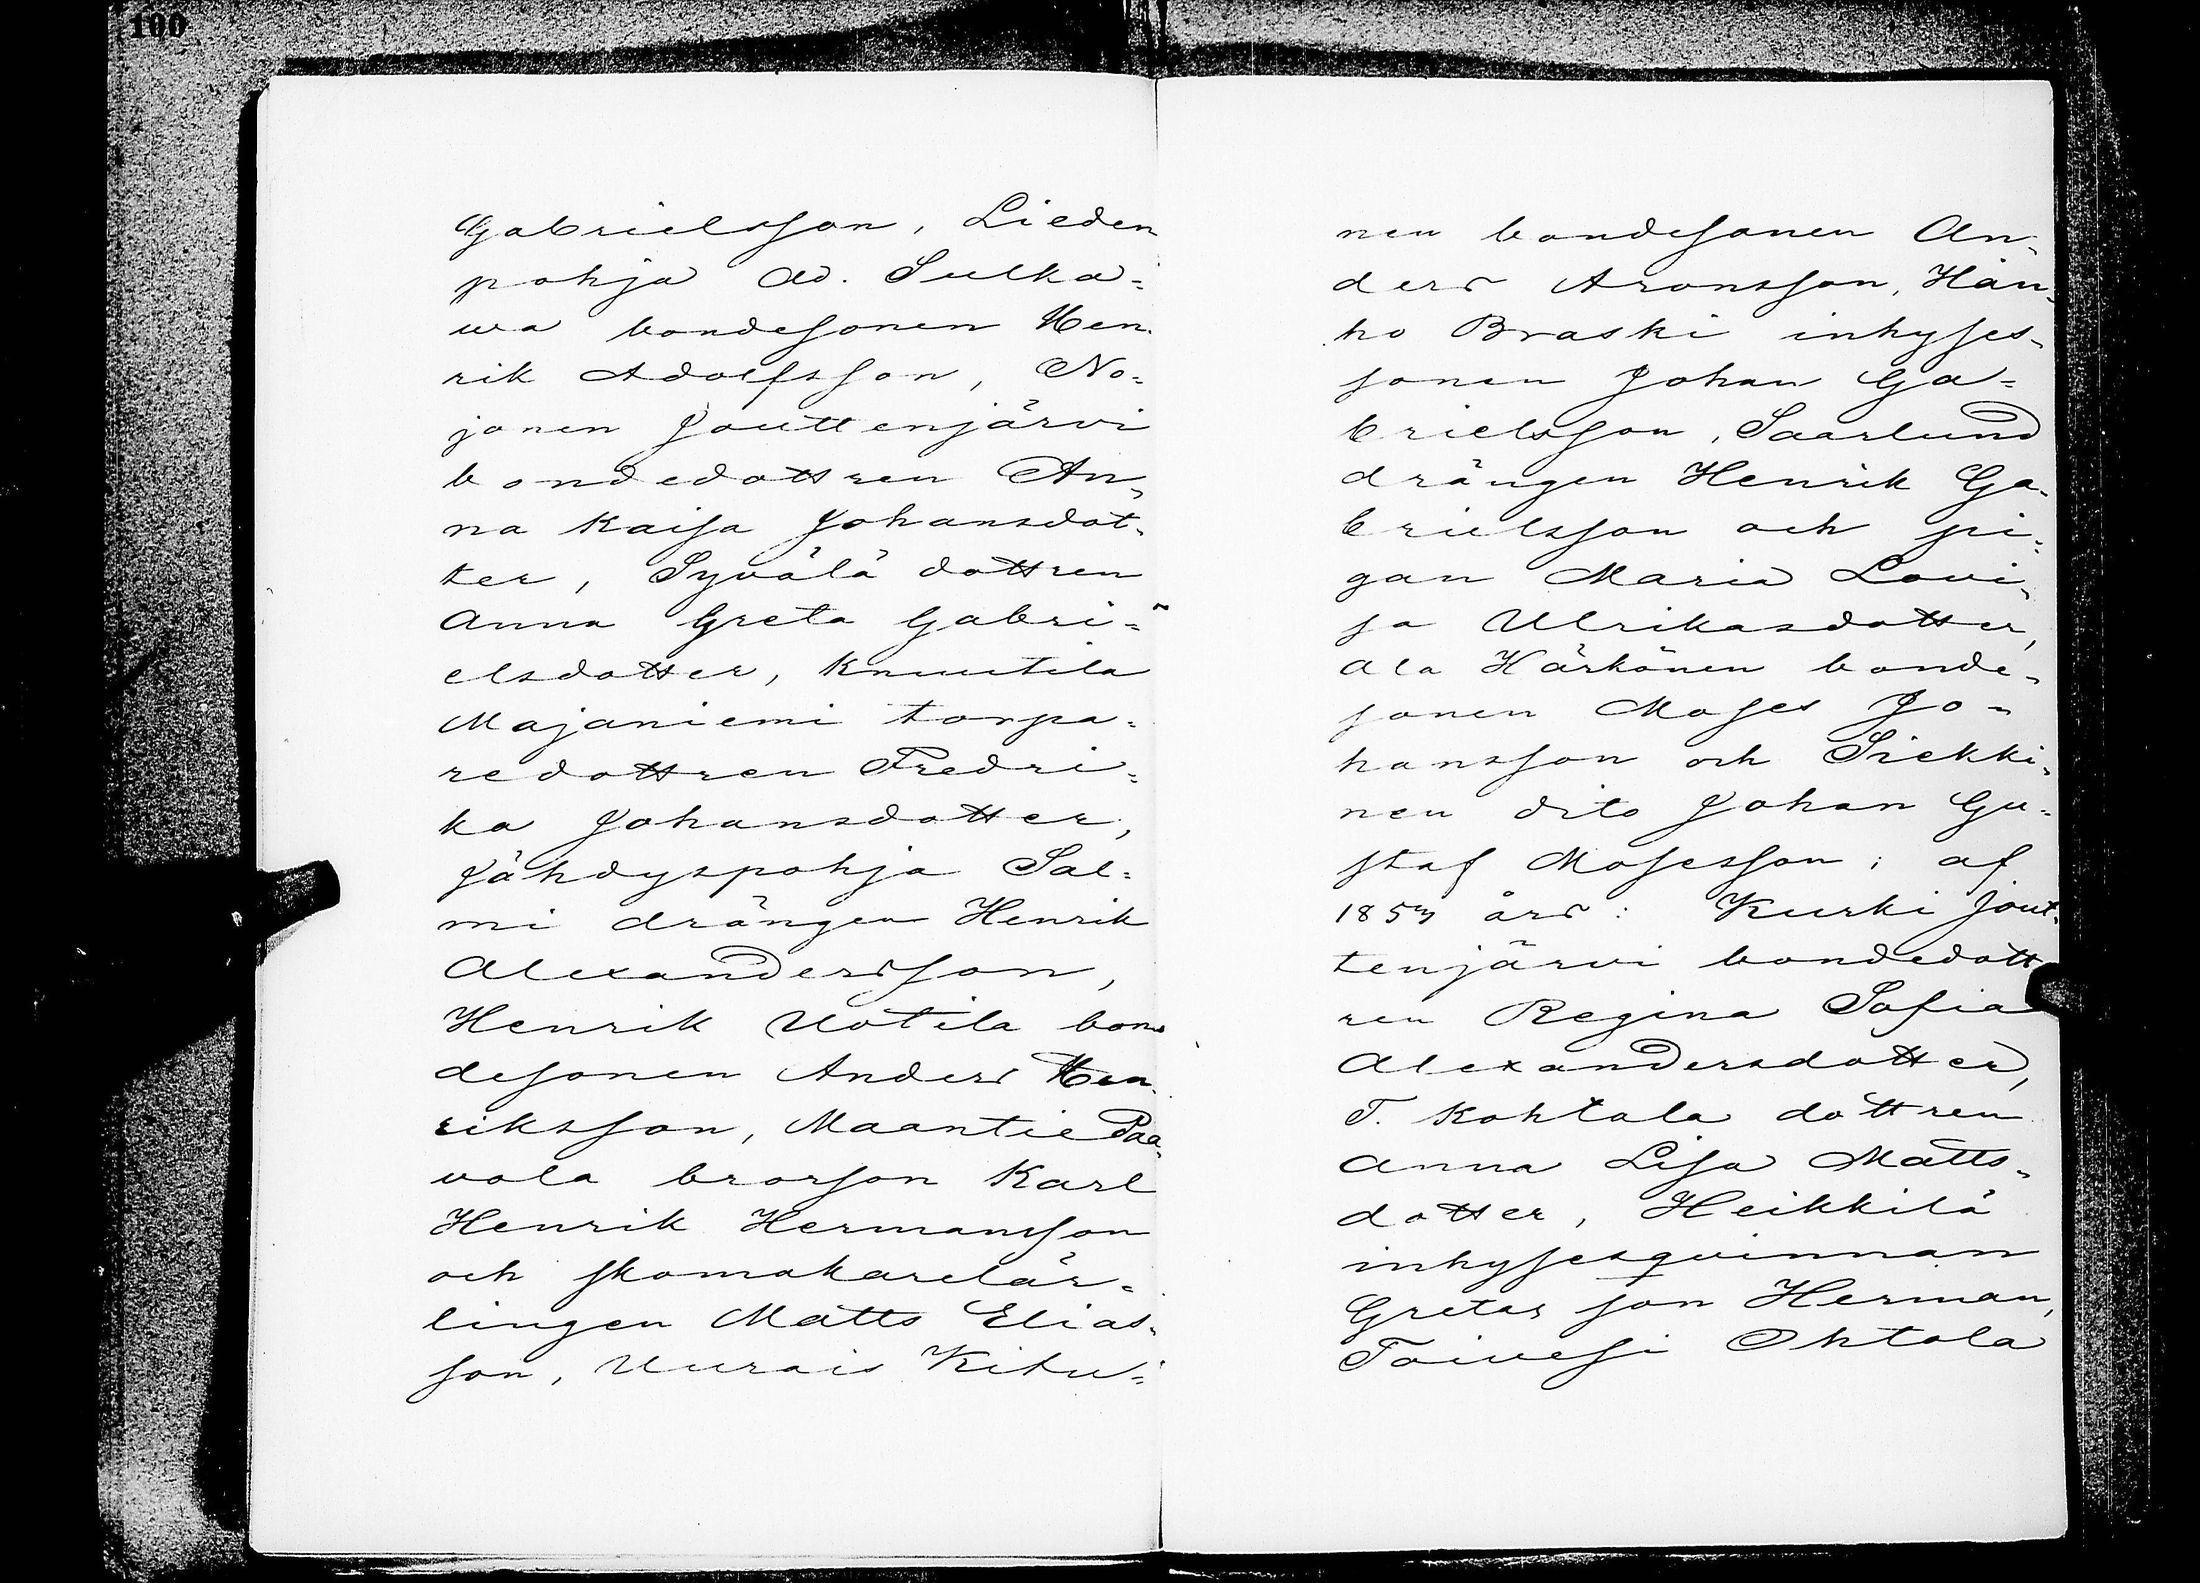 100
Gabrielsson, Lieden
pohja Ad. Sulka=
wa bondesonen Hen.
rik Adolfsson, No=
jonen Jouttenjärvi
bondedottren An-
na Kaisa Johansdot-
ter, Syvälä dottren
Anna Greta Gabri=
elsdotter, Knuutila
Majaniemi torpa=
redottren Fredri=
ka Johansdotter,
Jähdyspohja Sal=
mi drängen Henrik
Alexandersson,
Henrik Uotila bon-
desonen Anders Hen-
riksson, Maantie Paa-
vola brorson Karl
Henrik Hermansson
och skomakarelär=
lingen Matts Elias-
son, Uurais Kitu=
nen bondesonen An-
ders Aronsson, Hän-
ho Braski inhyses-
sonen Johan Ga=
brielsson, Saarlund
drängen Henrik Ga-
brielsson och pi=
gan Maria Lovi-
sa Ulrikasdotter,
Ala Härkönen bonde-
sonen Moses Jo=
hansson och Siekki-
nen dito Johan Gu=
staf Mosesson; af
1857 års: Kurki Jout-
tenjärvi bondedott
ren Regina Sofia
Alexandersdotter,
T. Kohtala dottren
Anna Lisa Matts-
dotter, Heikkilä
inhysesqvinnan
Gretas son Herman,
Toivesi Ohtola